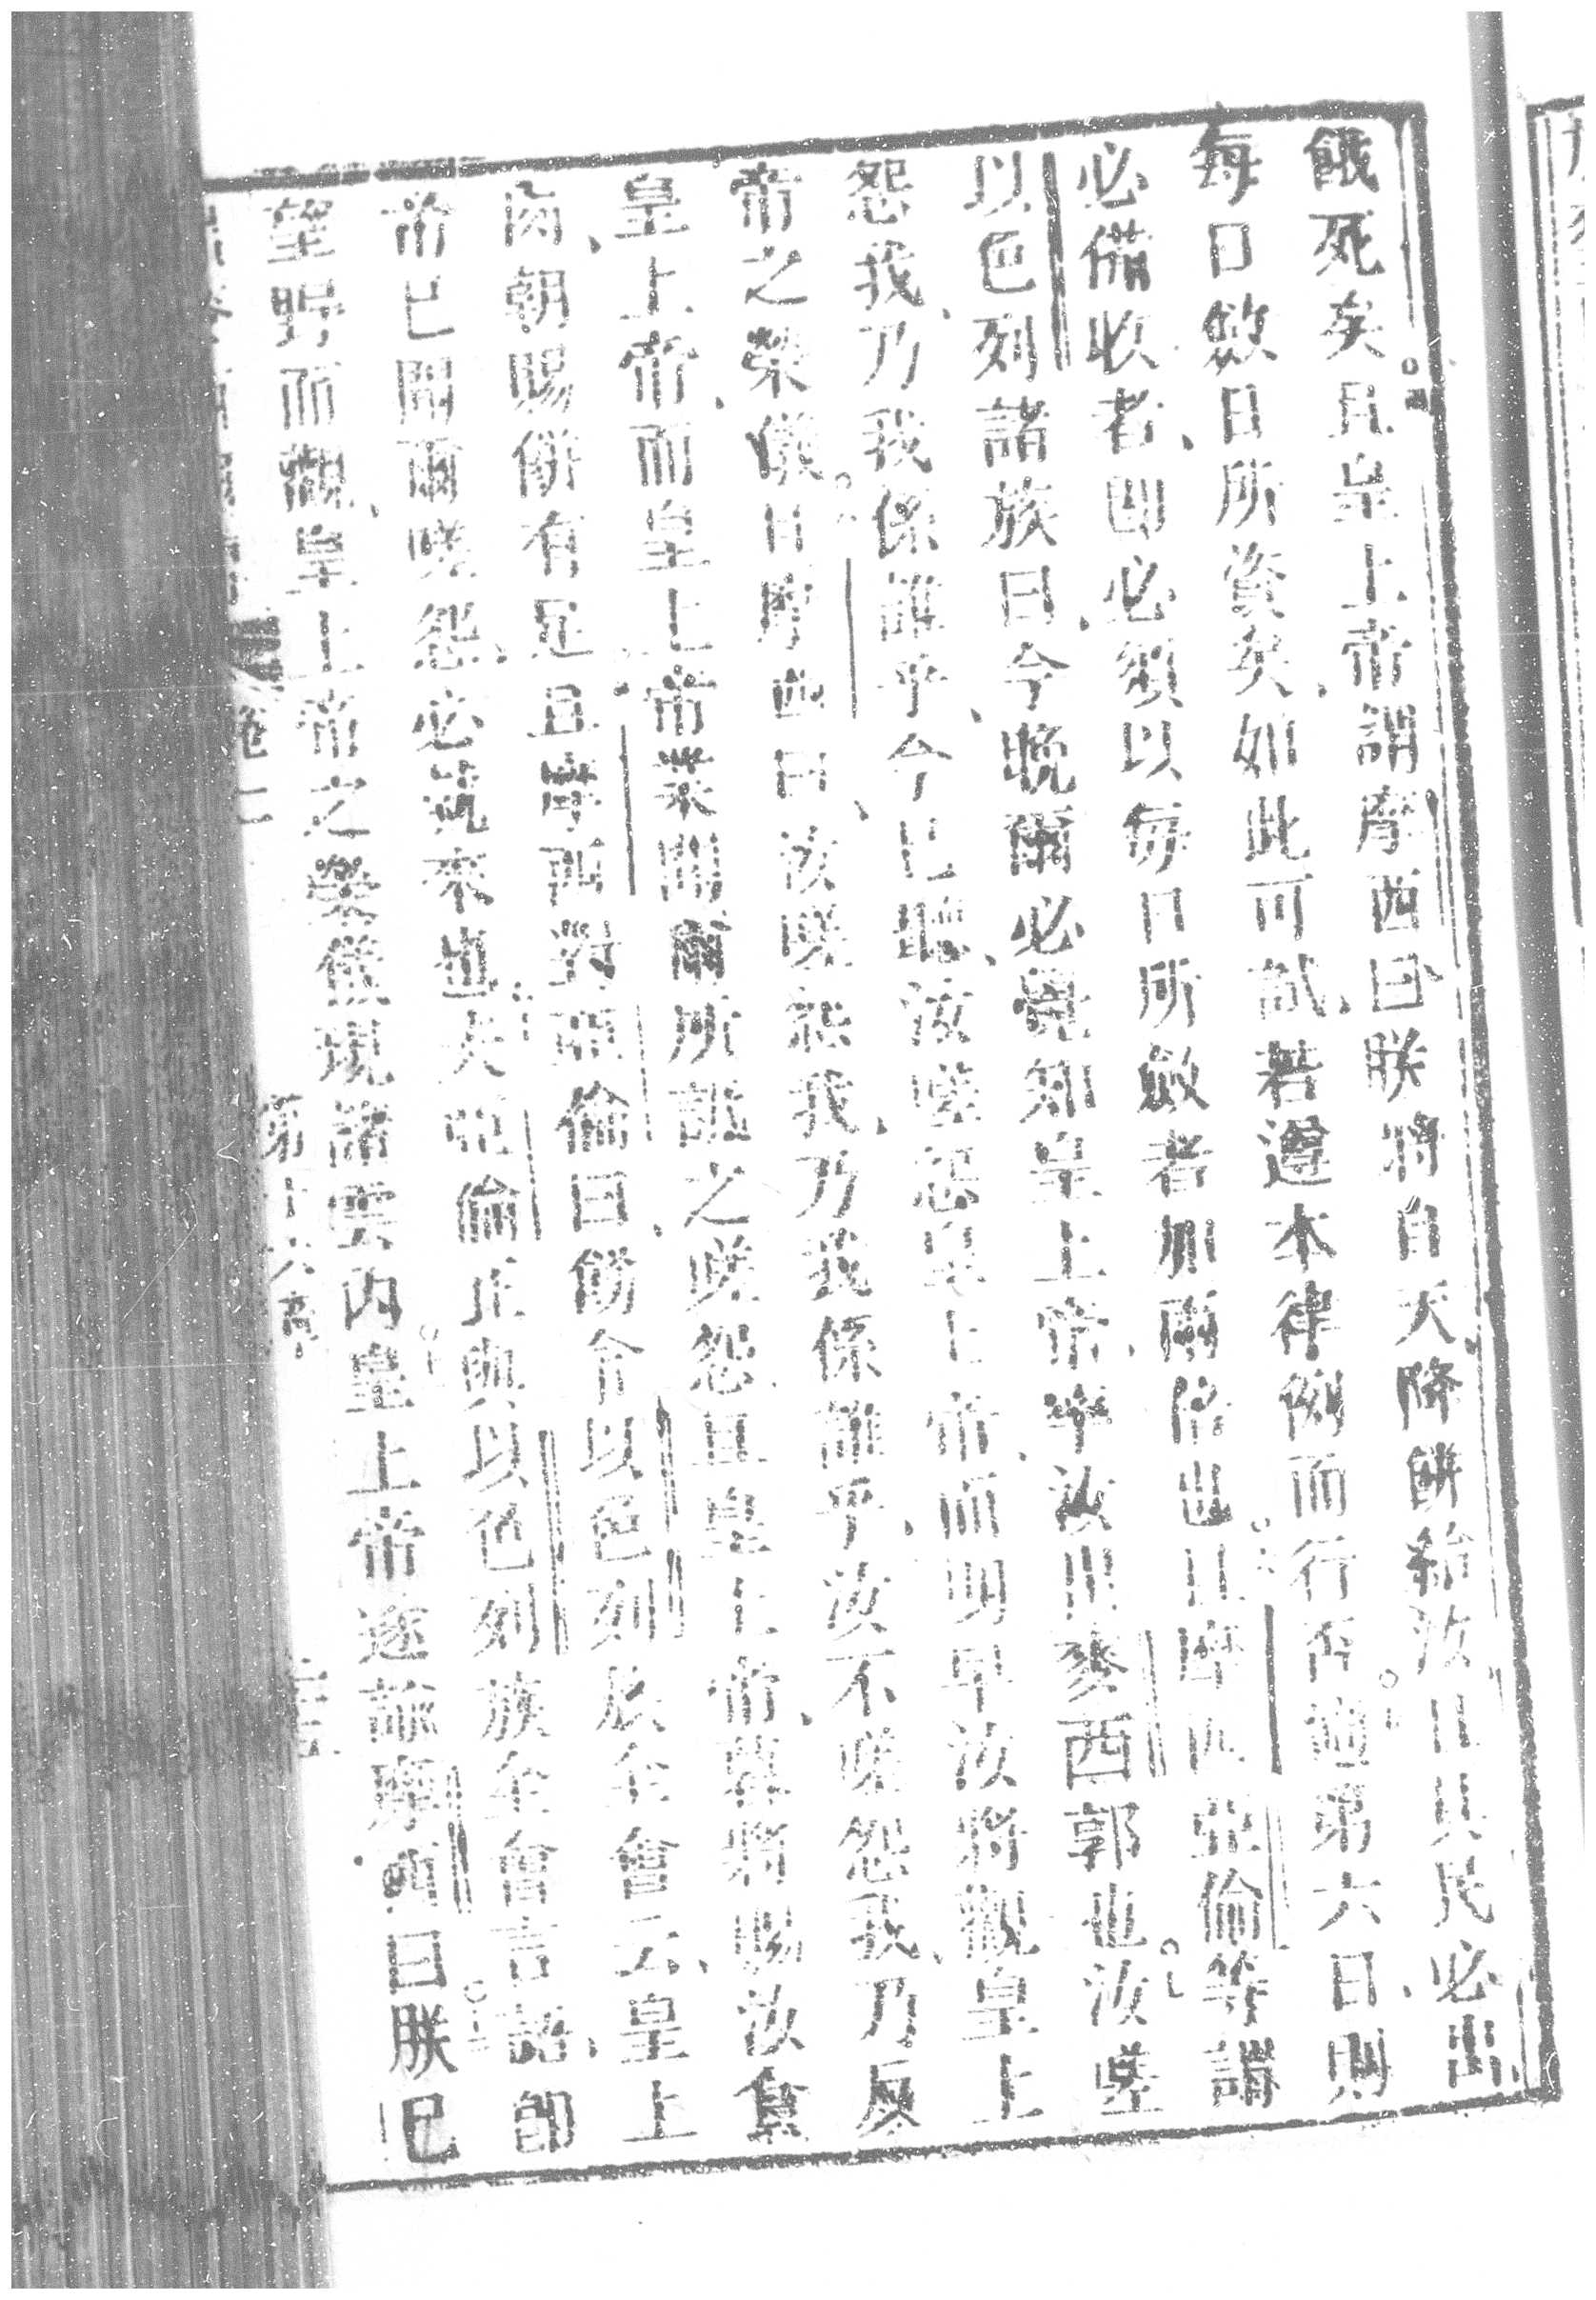 餓死矣且皇上帝謂摩西曰朕將自天降餅給汝且其民必出
每日斂日所資矣如此可試若遵本律例而行否過第六日則
必備收者因必須以每日所斂者加兩倍也且摩西亞倫等謂
以色列諸族曰今晚爾必覺知皇上帝率汝出麥西郭也汝嗟
怨我乃我係誰乎今已聽汝嗟怨皇上帝而明早汝將觀皇上
帝之榮儀 摩西曰汝嗟怨我乃我係誰乎汝不嗟怨我乃反
皇上帝而皇上帝業聞爾所 之嗟怨且皇上帝 將賜汝食
肉朝賜餅有足且摩西對亞倫曰餝令以色列族全會云皇上
帝已聞爾嗟怨必就來也夫亞倫正與以色列族全會言語卽
望野而觀皇上帝之榮儀現諸雲內皇上帝遂諭摩西曰朕已
卷二 第十六章